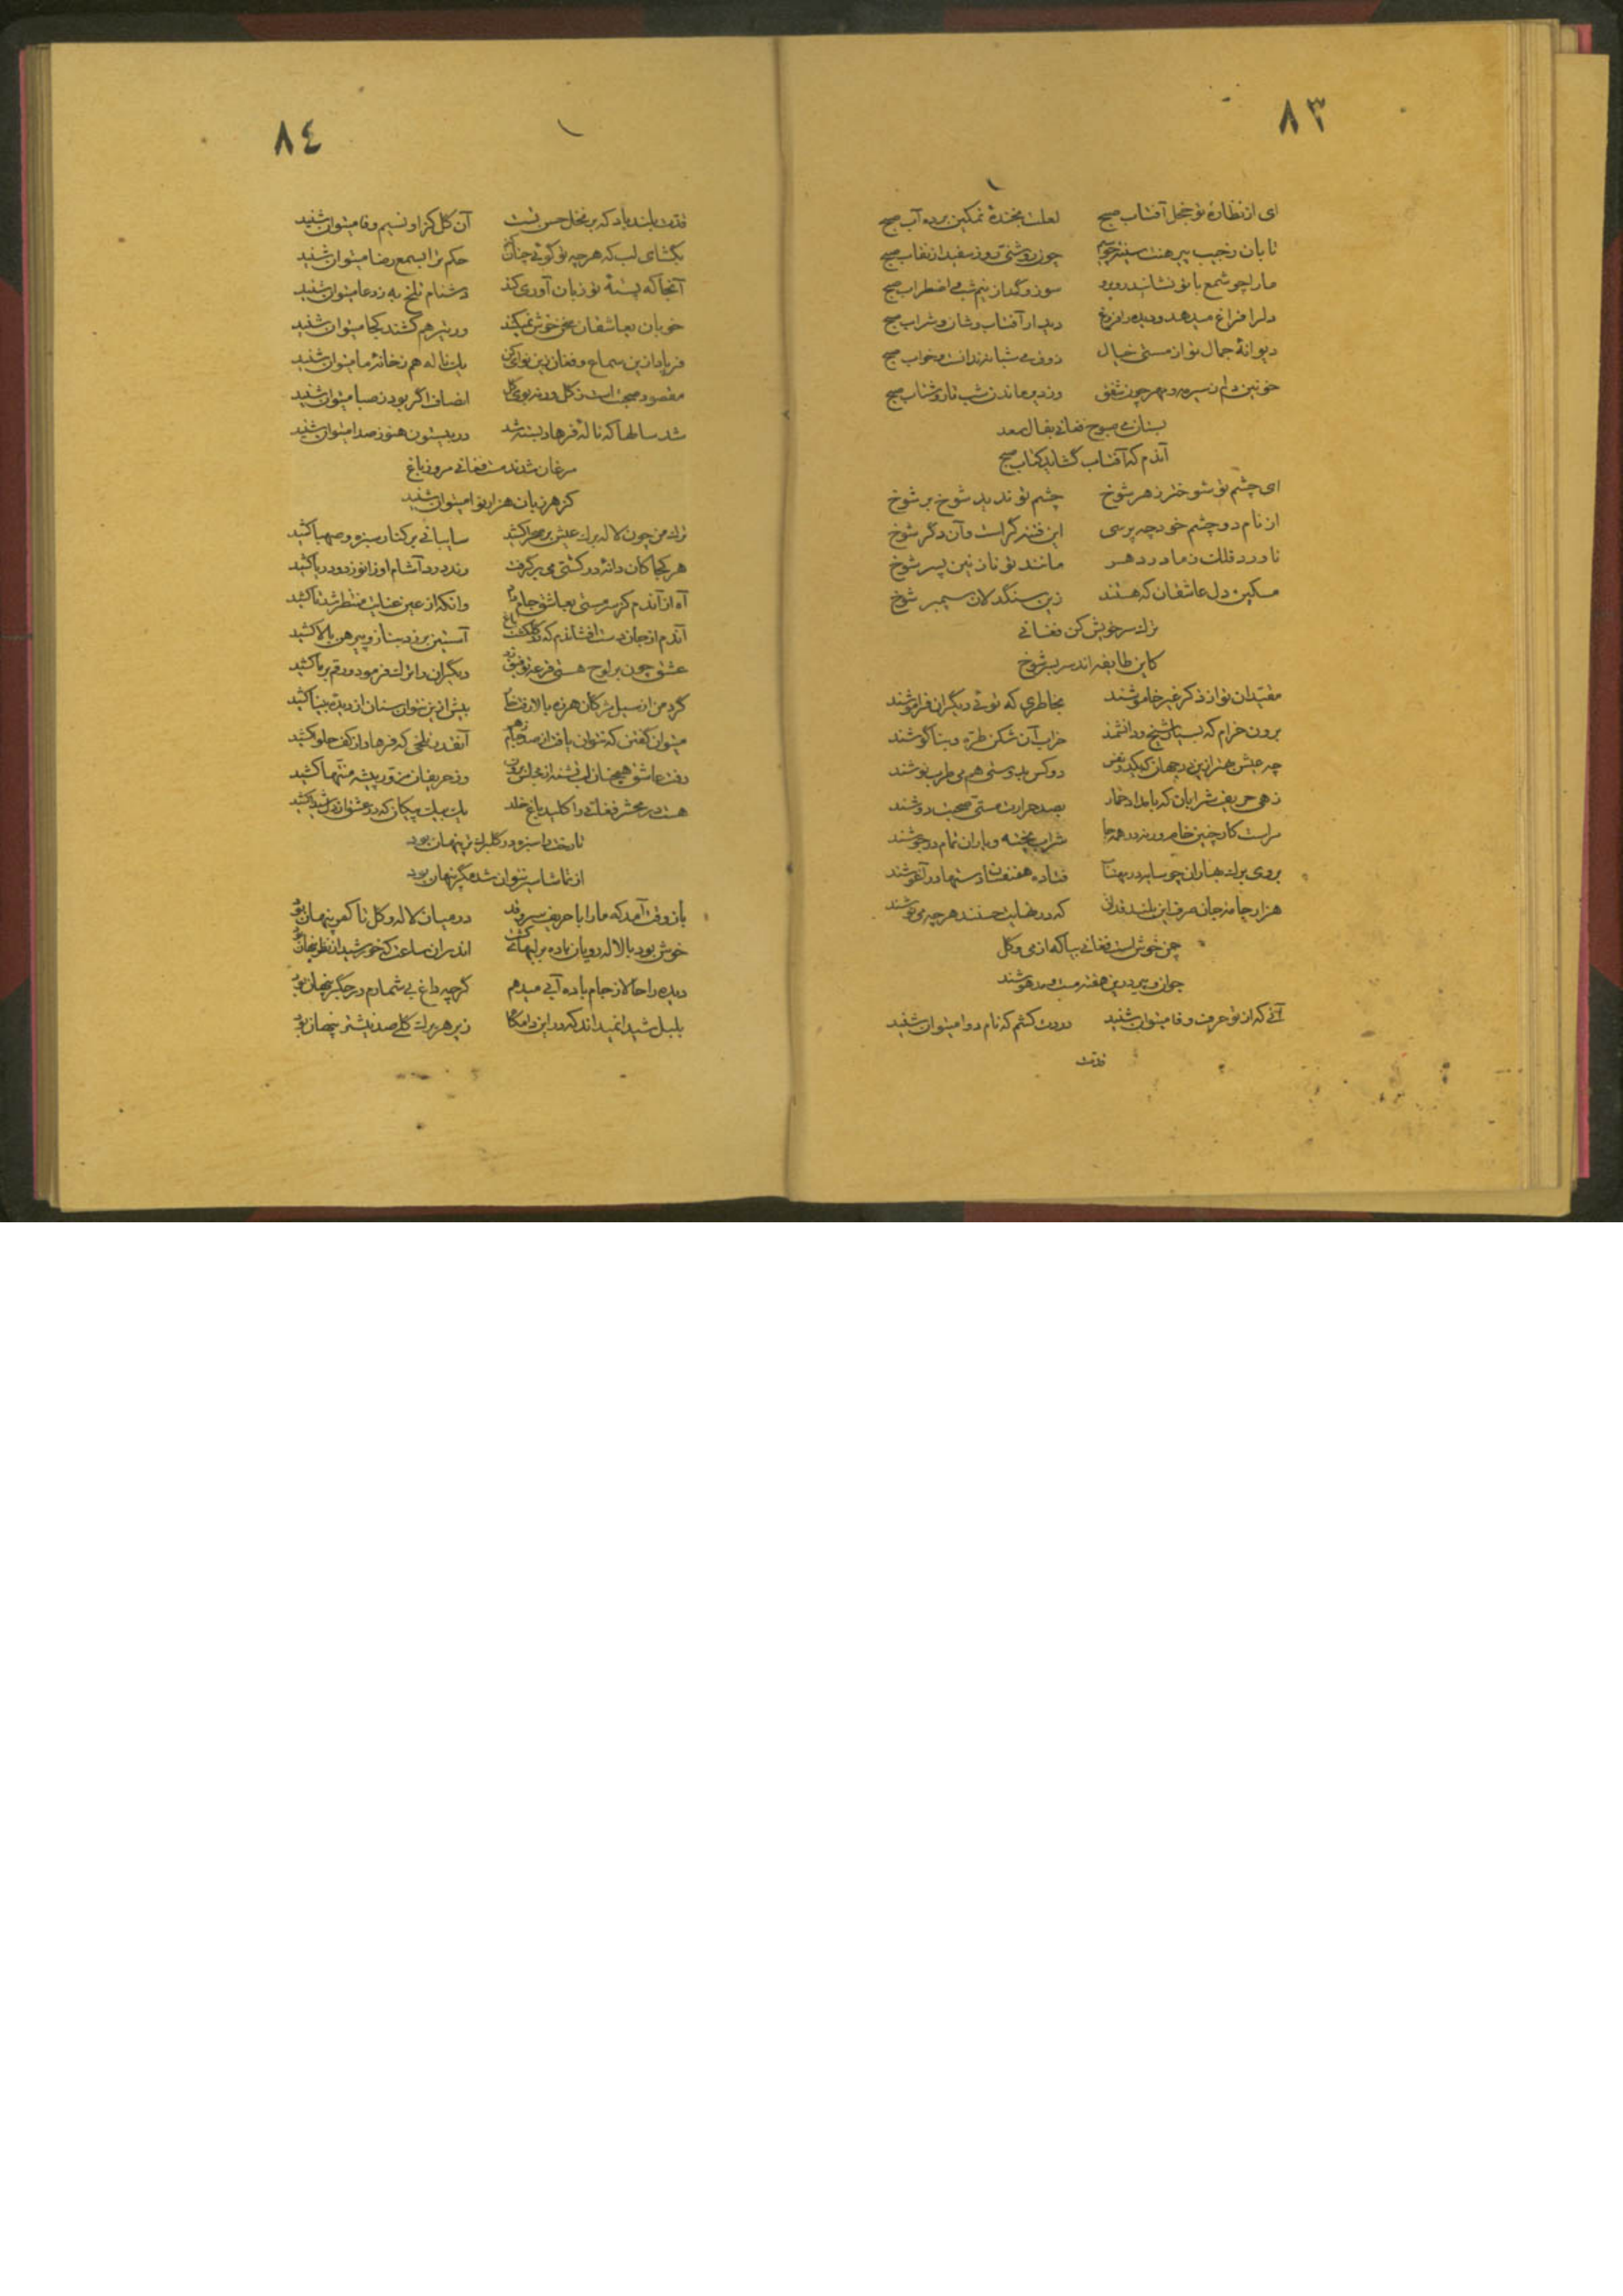 ٨٣
ای از نظارهٔ تو خجل آفتاب صبح لعلت بخندهٔ نمکین برده آب صبح
تابان ز جیب پیرهنت سینه چو سیم چون روشنی روز سفید از نقاب صبح
ما را چو شمع با تو نشاند روبرو سوز و گداز نیم شب و اضطراب صبح
دل را فراغ میدهد و دیده را فروغ دیدار آفتاب وشان و شراب صبح
دیوانهٔ جمال تو از مستی خیال ذوق می شبانه ندانست و خواب صبح
خونین دلم ز سیر مه و مهر چون شفق شب تار و شتاب صبح
بستان می صبوح فغانی بفال سعد
آندم که آفتاب گشاید کتاب صبح
ای چشم تو شوختر ز هر شوخ چشم تو ندید شوخ بر شوخ
از نام دو چشم خود چه پرسی این فتنه گرست و آن دگر شوخ
ناورد فلک ز مادر دهر مانند تو نازنین پسر شوخ
مسکین دل عاشقان که هستند زین سنگدلان سیمبر شوخ
ترک سر خویش کن فغانی
کاین طایفه اند سر بسر شوخ
مقیدان تو از ذکر غیر خاموشند بخاطری که توئی دیگران فراموشند
برون خرام که بسیار شیخ و دانشمند خراب آن شکن طره و بناگوشند
چه عیش بهتر ازین در جهان که یکدو نفس دو کس بدوستی هم می طرب نوشند
زهی حریف شرابان که بامداد خمار بصد حرارت مستی صحبت دوشند
مراست کار چنین خام ورنه در همه جا شراب پخته و یاران تمام در جوشند
بروی برگ بهاران چو سایه در مهتاب فتاده هم نفسان دستها در آغوشند
هزار جامهٔ جان صرف این بلند قدان که در نهایت حسنند هر چه می پوشند
چمن خوش است فغانی بیا که از می و گل
جوان و پیر درین هفته مست و مدهوشند
آنی که از تو حرف وفا میتوان شنید دردت کشم که نام دوا میتوان شنید
قدت
٨٤
قدت بلند باد که بر نخل حسن تست آن گل کزاو نسیم وفا میتوان شنید
بگشای لب که هر چه تو گوئی چنان حکم ترا بسمع رضا میتوان شنید
آنجا که پستهٔ تو زبان آوری کند دشنام تلخ به ز دعا میتوان شنید
خوبان بعاشقان سخن خوش نمیکنند ور نیز هم کنند کجا میتوان شنید
فریاد ازین سماع و فغان زین نوا یک ناله هم ز خانهٔ ما میتوان شنید
مقصود صحبت است ز گل ورنه بوی گل انصاف اگر بود ز صبا میتوان شنید
شد سالها که نالهٔ فرهاد بسته شد در بیستون هنوز صدا میتوان شنید
مرغان شدند مست فغانی مرو ز باغ
کز هر زبان هزار نوا میتوان شنید
ترک من چون لاله برگ عیش بر صحرا کشید سایبانی بر کنار سبزه و صهبا کشید
هر کجا کان دانهٔ در کشتی می برگرفت رند درد آشام او زانو زد و دریا کشید
آه از آندم کز سر مستی بعاشق جام داد وانکه از عین عنایت منتظر شد تا کشید
آندم از جان دست افشاندم که در گلگشت باغ آستین بر زد بناز و پیرهن بالا کشید
عشق چون بر لوح هستی قرعهٔ توفیق زد دیگران را ترک فرمود و رقم بر ما کشید
گرد من از سیل مژگان هرزه بالا رفت بیش ازین نتوان سنان از دیدهٔ بینا کشید
میتوان گفتن که نتوان یافت از صد جام زهر آنقدر تلخی که فرهاد از کف حلوا کشید
رفت عاشق همچنان لب تشنه از مجلس برون وز حریفان مزور پیشه منتها کشید
هست در محشر فغانی را کلید باغ خلد یک بیک پیکان که در عشق از دل شیدا کشید
تا رخت را سبزه در گلبرگ تر پنهان بود
از تماشایت نتوان شد مگر پنهان بود
باز وقت آمد که ما را با حریف سرو قد در میان لاله و گل تا کمر پنهان بود
خوش بود با لاله رویان باده بر لبهای کشت اندران ساعت که خورشید از نظر پنهان بود
دیده را حالا ز جام باده آبی میدهم گرچه داغ بی شمارم در جگر پنهان بود
بلبل شیدا نمیداند که در این دامگاه زیر هر برگ گلی صد نیشتر پنهان بود